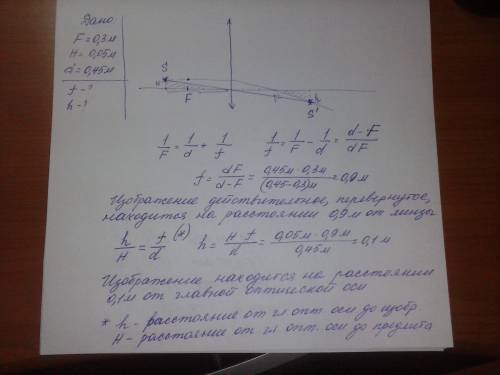 Дано:
F = 0,3м
H = 0,05м
d = 0,45м
f - ?
h - ?
S
H
F
F
h
S'
1/F = 1/d + 1/f    1/f = 1/F - 1/d = (d-F)/dF
f = dF/(d-F) = 0,45м · 0,3м/(0,45-0,3)м = 0,9м
Изображение действительное, перевернутое,
находится на расстоянии 0,9м от линзы
h/H = f/d (*)  h = H·f/d = 0,05м · 0,9м/0,45м = 0,1м
Изображение находится на расстоянии
0,1м от главной оптической оси
* h - расстояние от гл опт. оси до изобр
H - расстояние от гл. опт. оси до предмета